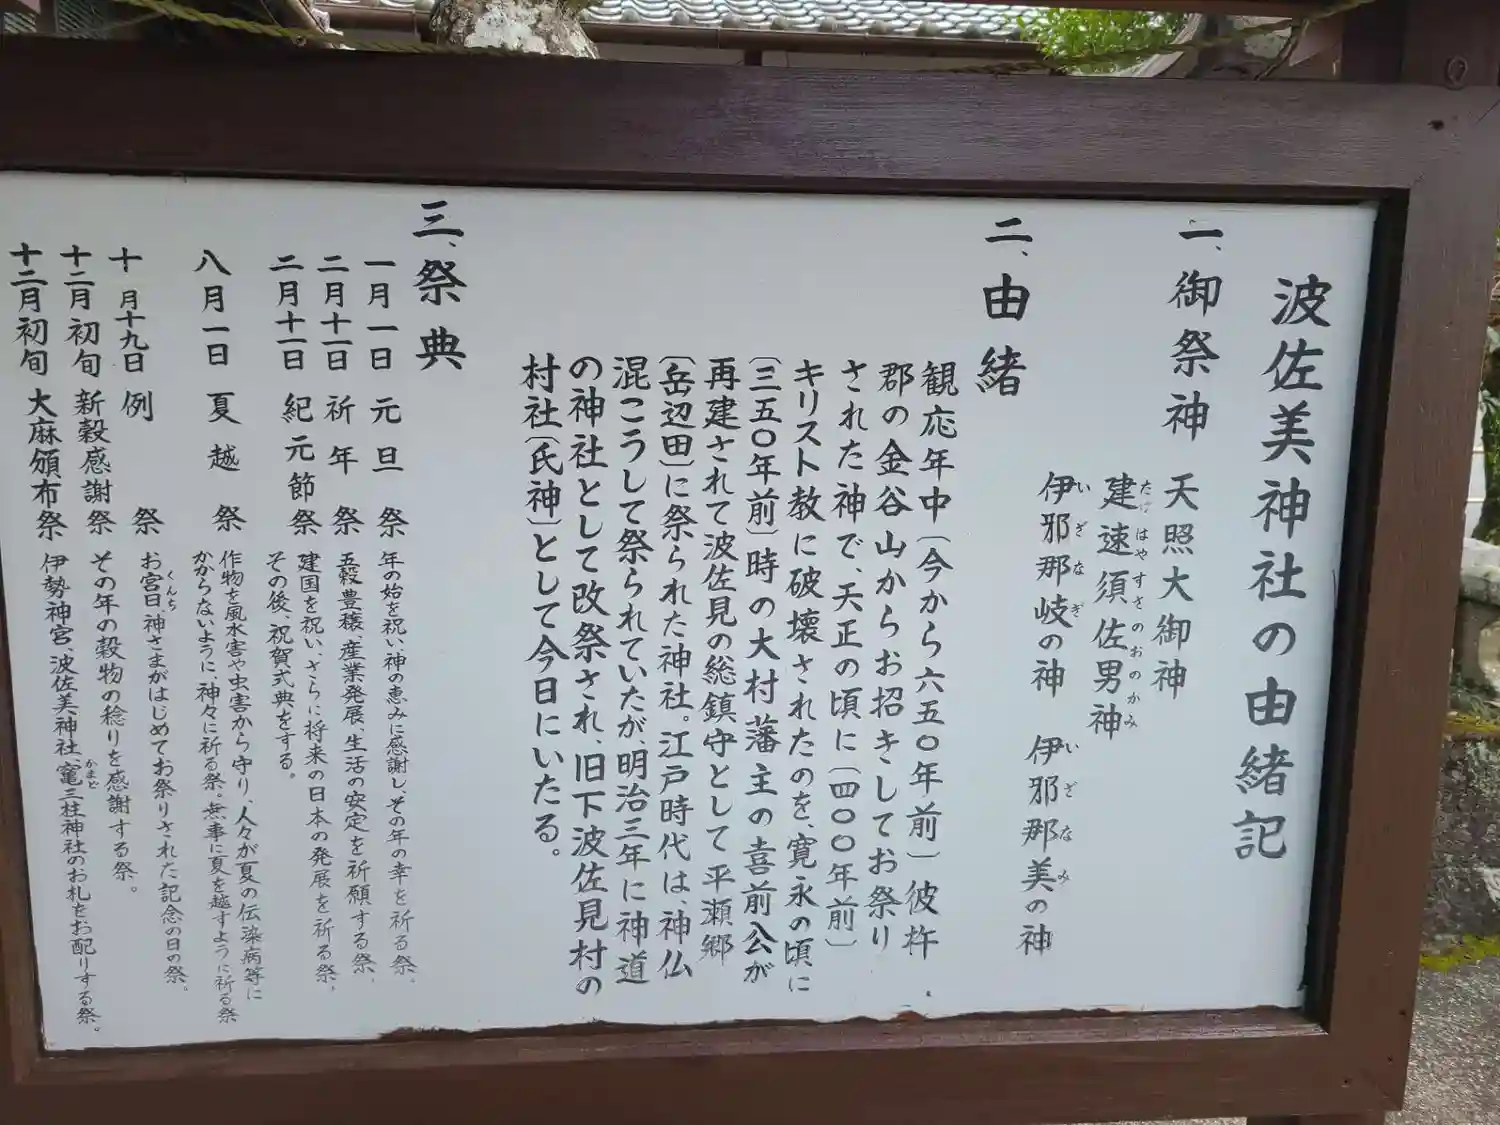 波佐美神社の由緒記
一、御祭神 天照大御神
建速須佐男神
たけはやすさのおのかみ
伊邪那岐の神 伊邪那美の神
いざなぎ いざなみ
二、由緒
観応年中〔今から六五〇年前〕彼杵
郡の金谷山からお招きしてお祭り
された神で、天正の頃に〔四〇〇年前〕
キリスト教に破壊されたのを、寛永の頃に
〔三五〇年前〕時の大村藩主の喜前公が
再建されて波佐見の総鎮守として平瀬郷
〔岳辺田〕に祭られた神社。江戸時代は、神仏
混こうして祭られていたが明治三年に神道
の神社として改祭され、旧下波佐見村の
村社〔氏神〕として今日にいたる。
三、祭典
一月一日 元旦祭 年の始を祝い、神の恵みに感謝し、その年の幸を祈る祭、
二月十一日 祈年祭 五穀豊穣、産業発展、生活の安定を祈願する祭、
二月十一日 紀元節祭 建国を祝い、さらに将来の日本の発展を祈る祭、
その後、祝賀式典をする。
八月一日 夏越祭 作物を風水害や虫害から守り、人々が夏の伝染病等に
かからないように、神々に祈る祭。無事に夏を越すように祈る祭
十月十九日 例祭 お宮日、神さまがはじめてお祭りされた記念の日の祭。
くんち
十二月初旬 新穀感謝祭 その年の穀物の稔りを感謝する祭。
十二月初旬 大麻頒布祭 伊勢神宮、波佐美神社、竃三柱神社のお札をお配りする祭。
かまど